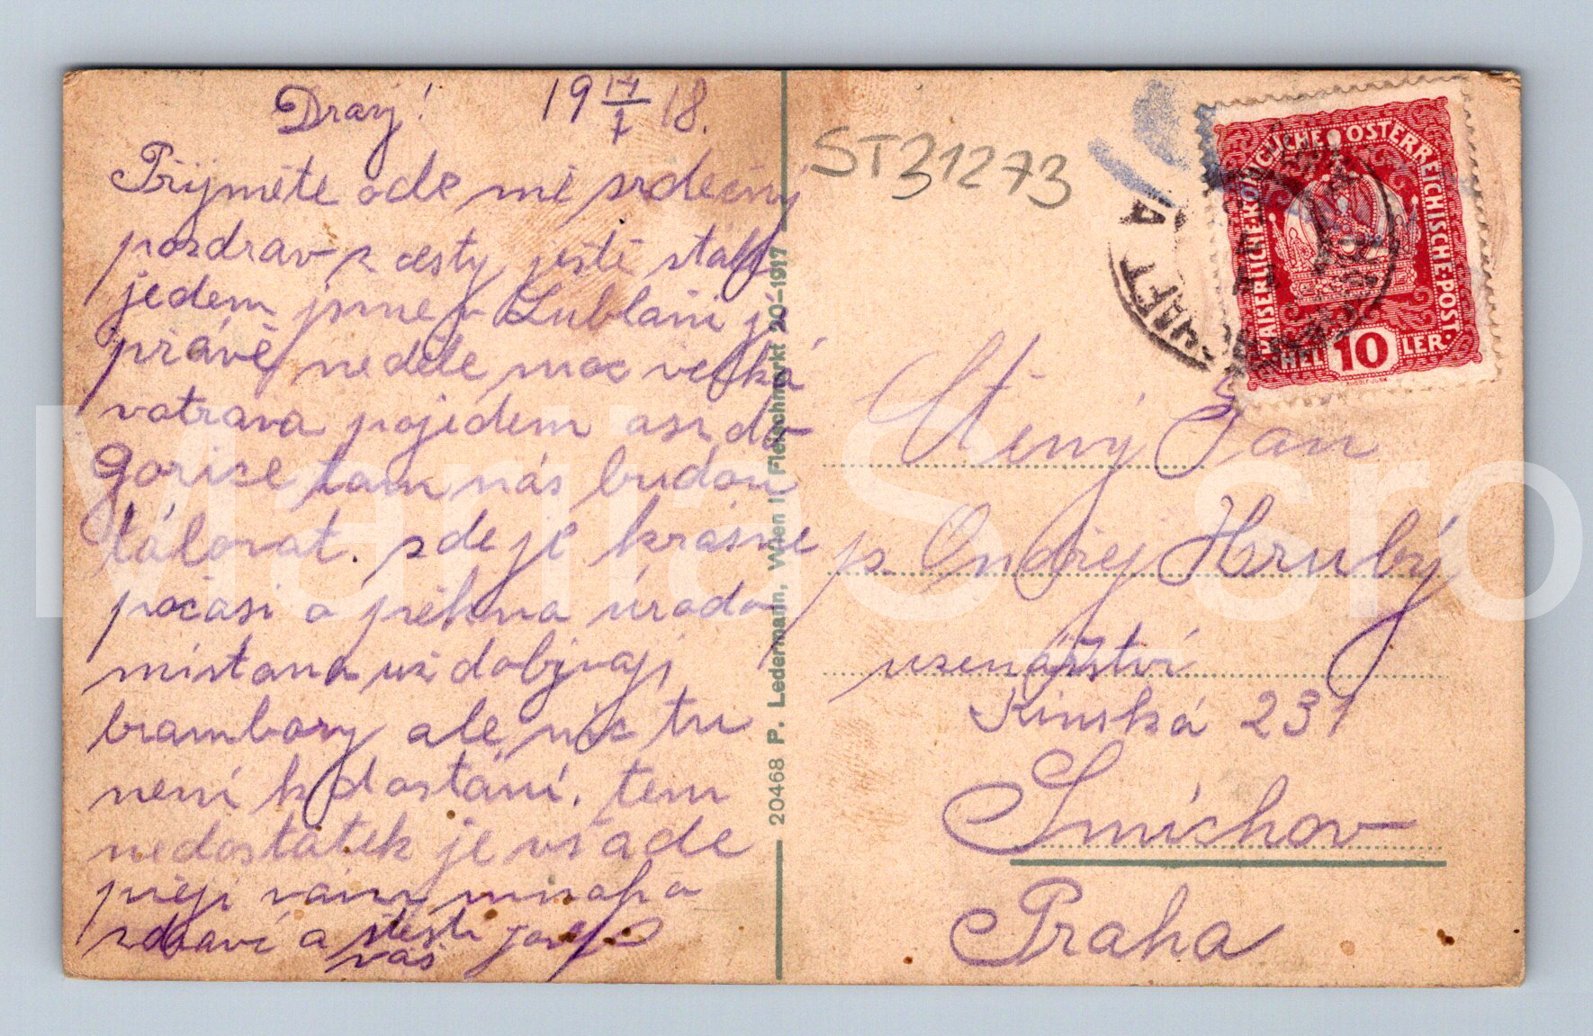 Drazí! 19 14/7 18.
Přijměte ode mě srdečný
pozdrav z cesty ještě stále
jedem jsme v Lublani je
právě neděle moc velká
votrava pojedem asi do
Gorice tam nás budou
tálovat. zde je krásné
počasí a pěkna úroda
místama už dobývají
brambory ale nic tu
není k dostání. tem
nedostatek je všade
přeji vám mnoho
zdraví a štěstí
váš
ST31273
KAISERLICHE KÖNIGLICHE ÖSTERREICHISCHE POST.
HEL 10 LER.
Ctěný Pan
p. Ondřej Hrubý
uzenářství
Kinská 231
Smíchov
Praha
20468 P. Ledermann, Wien I Fleischmarkt 20-1917
ManiaS sro